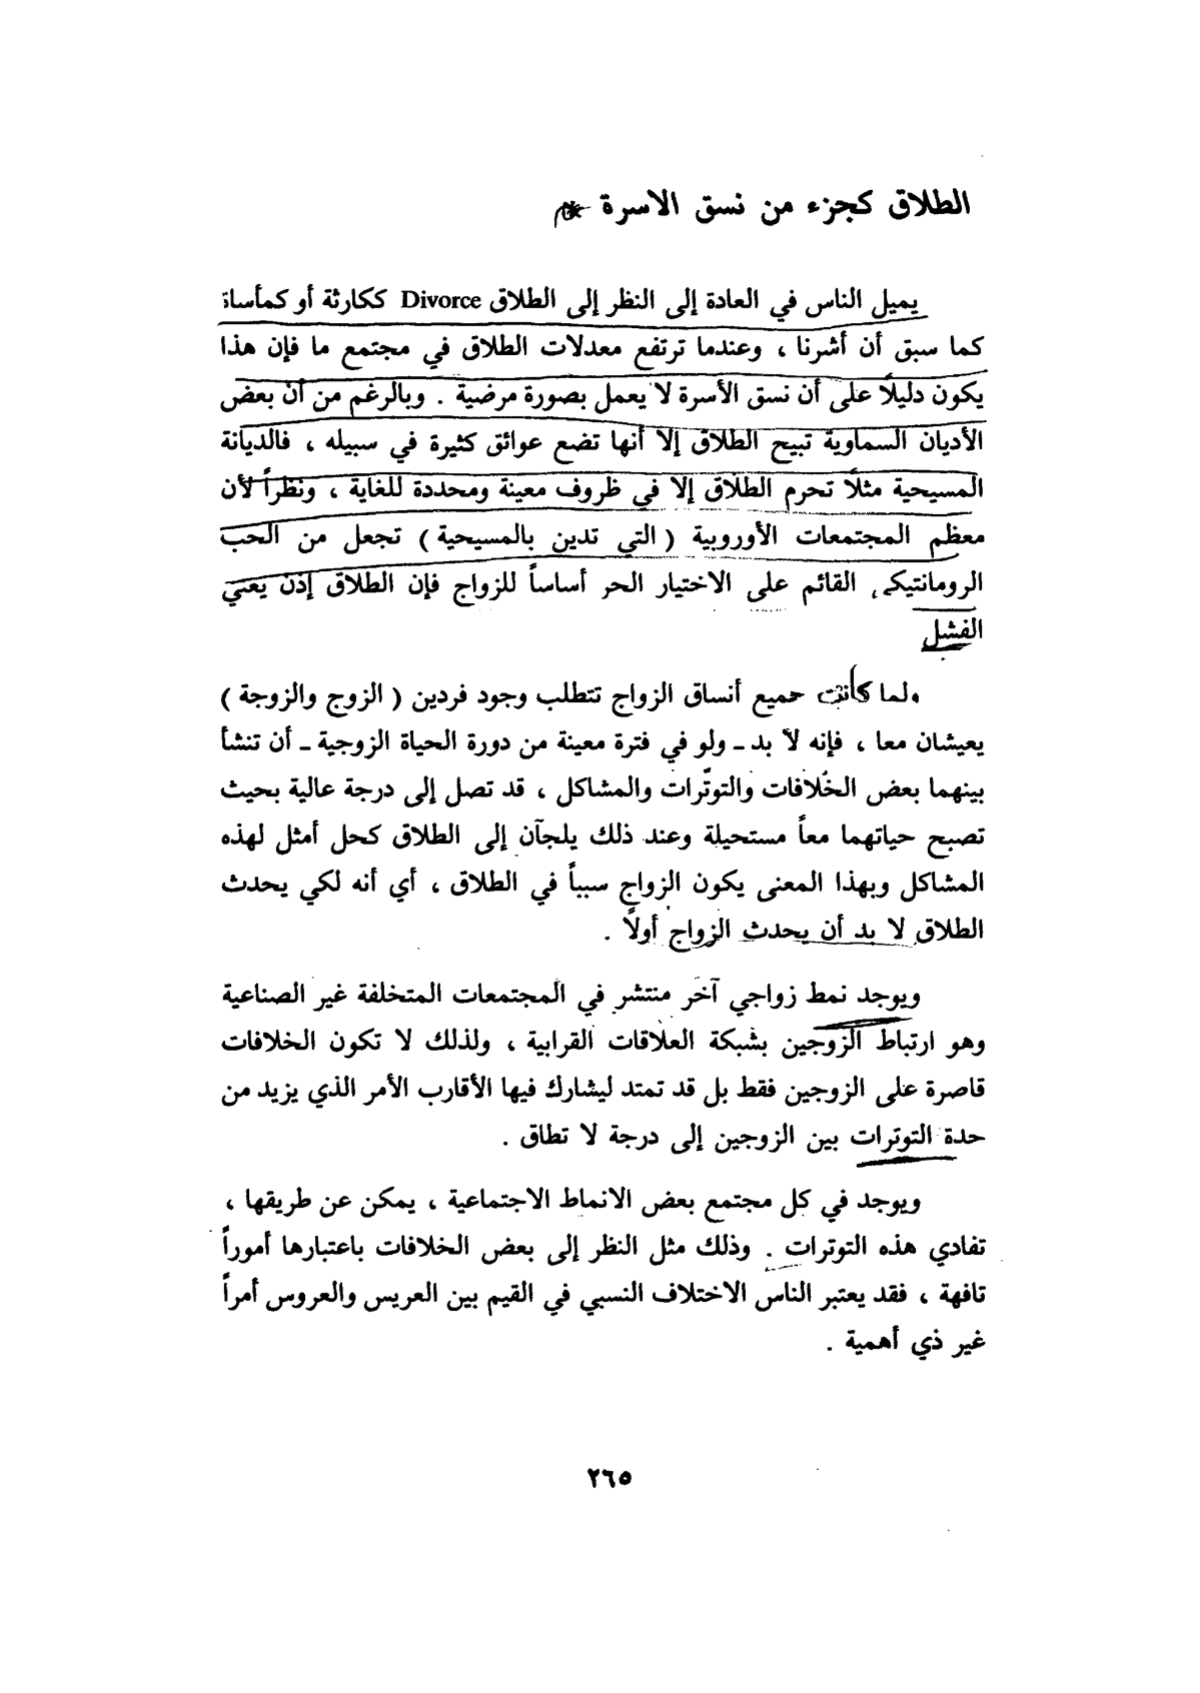 الطلاق كجزء من نسق الاسرة
يميل الناس في العادة إلى النظر إلى الطلاق Divorce ككارثة أو كمأساة
كما سبق أن أشرنا ، وعندما ترتفع معدلات الطلاق في مجتمع ما فإن هذا
يكون دليلاً على أن نسق الأسرة لا يعمل بصورة مرضية . وبالرغم من أن بعض
الأديان السماوية تبيح الطلاق إلا أنها تضع عوائق كثيرة في سبيله ، فالديانة
المسيحية مثلاً تحرم الطلاق إلا في ظروف معينة ومحددة للغاية ، ونظراً لأن
معظم المجتمعات الأوروبية ( التي تدين بالمسيحية ) تجعل من الحب
الرومانتيكي القائم على الاختيار الحر أساساً للزواج فإن الطلاق إذن يعني
الفشل
ولما كانت جميع أنساق الزواج تتطلب وجود فردين ( الزوج والزوجة )
يعيشان معا ، فإنه لا بد ـ ولو في فترة معينة من دورة الحياة الزوجية ـ أن تنشأ
بينهما بعض الخلافات والتوترات والمشاكل ، قد تصل إلى درجة عالية بحيث
تصبح حياتهما معاً مستحيلة وعند ذلك يلجآن إلى الطلاق كحل أمثل لهذه
المشاكل وبهذا المعنى يكون الزواج سبباً في الطلاق ، أي أنه لكي يحدث
الطلاق لا بد أن يحدث الزواج أولاً .
ويوجد نمط زواجي آخر منتشر في المجتمعات المتخلفة غير الصناعية
وهو ارتباط الزوجين بشبكة العلاقات القرابية ، ولذلك لا تكون الخلافات
قاصرة على الزوجين فقط بل قد تمتد ليشارك فيها الأقارب الأمر الذي يزيد من
حدة التوترات بين الزوجين إلى درجة لا تطاق .
ويوجد في كل مجتمع بعض الانماط الاجتماعية ، يمكن عن طريقها ،
تفادي هذه التوترات . وذلك مثل النظر إلى بعض الخلافات باعتبارها أموراً
تافهة ، فقد يعتبر الناس الاختلاف النسبي في القيم بين العريس والعروس أمراً
غير ذي أهمية .
٢٦٥